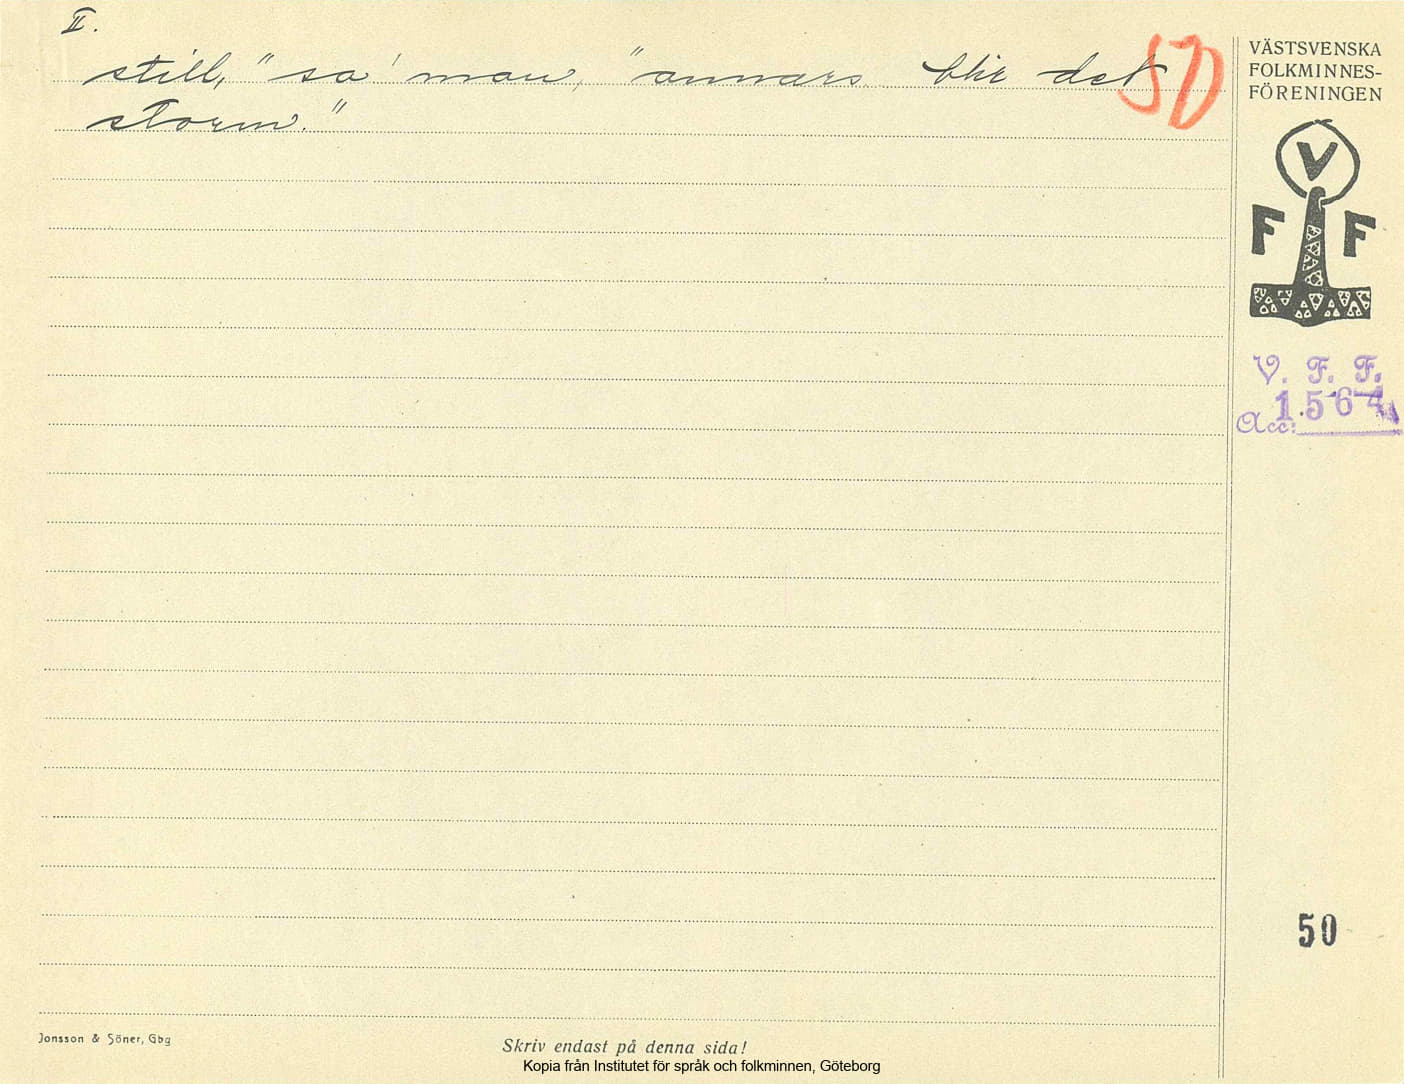 II.
still," sa' man, "annars blir det
storm."
50
VÄSTSVENSKA
FOLKMINNES-
FÖRENINGEN
V
F F
V. F. F.
Acc: 1564
50
Jonsson & Söner, Gbg
Skriv endast på denna sida!
Kopia från Institutet för språk och folkminnen, Göteborg